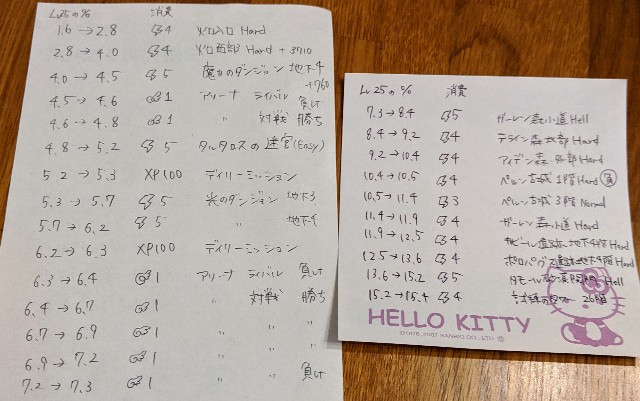 Lv.25の% 消費
1.6 → 2.8 4 火口入口 Hard
2.8 → 4.0 4 火口西部 Hard + 3910
4.0 → 4.5 5 魔力のダンジョン 地下4
+760
4.5 → 4.6 1 アリーナ ライバル 負け
4.6 → 4.8 1 〃 対戦 勝ち
4.8 → 5.2 5 タルタロスの迷宮(Easy)
5.2 → 5.3 XP100 デイリーミッション
5.3 → 5.7 5 光のダンジョン 地下3
5.7 → 6.2 5 〃 地下4
6.2 → 6.3 XP100 デイリーミッション
6.3 → 6.4 1 アリーナ ライバル 負け
6.4 → 6.7 1 対戦 勝ち
6.7 → 6.9 1 〃 〃
6.9 → 7.2 1 〃 〃
7.2 → 7.3 1 〃 負け
Lv 25の% 消費
7.3 → 8.4 5 ガーレン森小道 Hell
8.4 → 9.2 4 テライン森北部 Hard
9.2 → 10.4 4 アイデン森外部 Hard
10.4 → 10.5 4 古城 1階 Hard 負
10.5 → 11.4 3 古城 3階 Normal
11.4 → 11.9 4 ガーレン森小道 Hard
11.9 → 12.5 4 地下4階 Hard
12.5 → 13.6 4 地下4階 Hard
13.6 → 15.2 5 Hell
15.2 → 15.4 4 試練のタワー 26階
HELLO KITTY